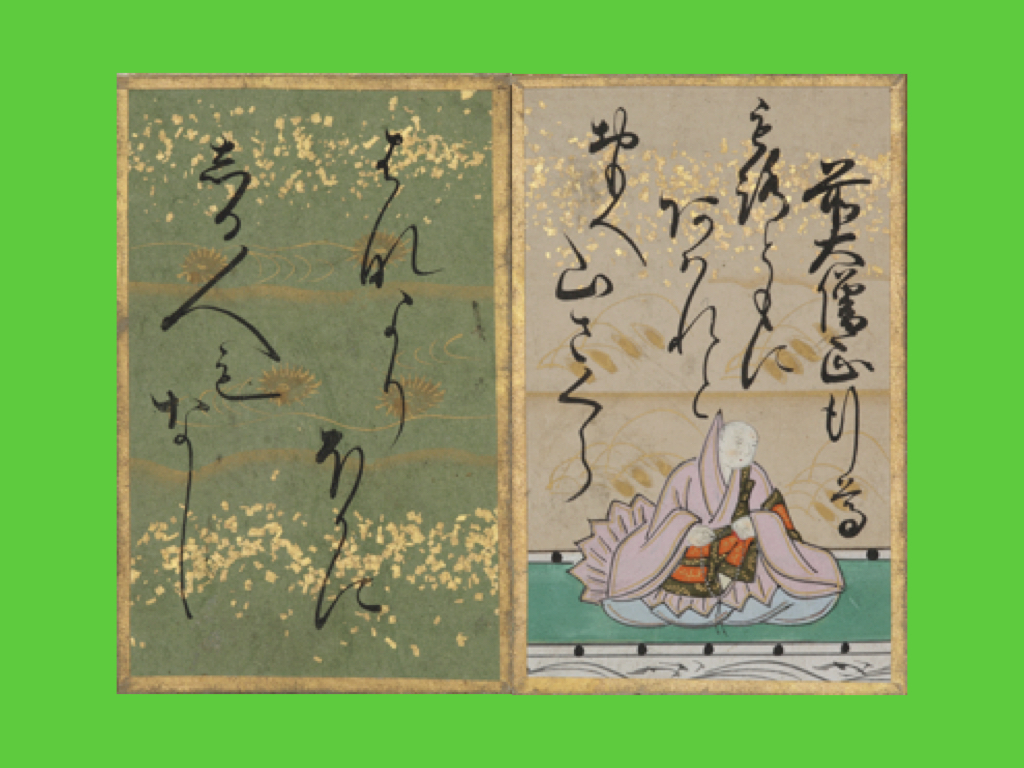 前大僧正行尊
もろともに
あはれと
おもへ山さくら
はなより
ほかに
しる人も
なし